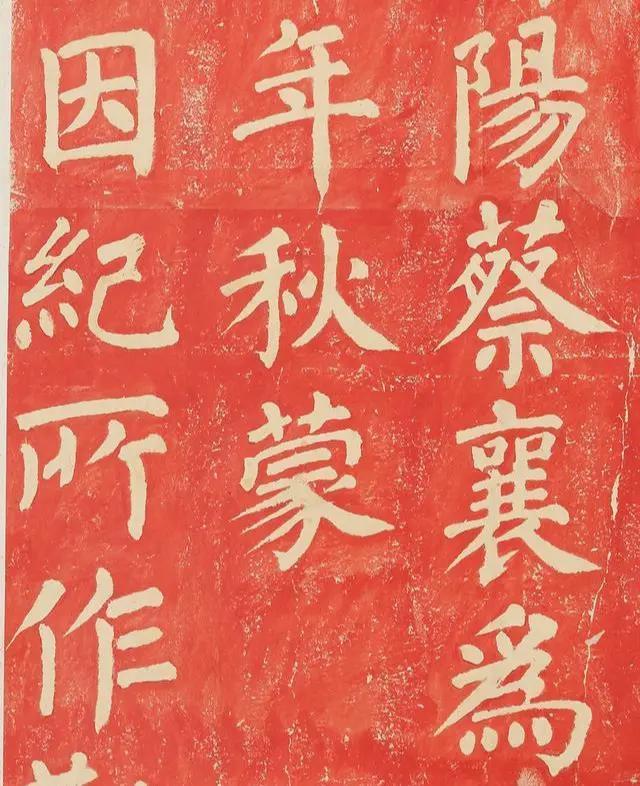 陽蔡襄爲
年秋蒙
因紀所作